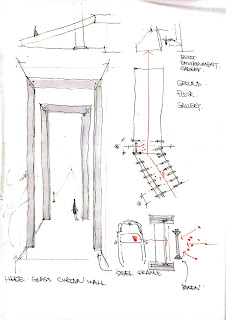 BUILT
ENVIRONMENT
GALLERY.
GROUND
FLOOR
GALLERY
STEEL FRAME
HUGE GLASS CURTAIN WALL